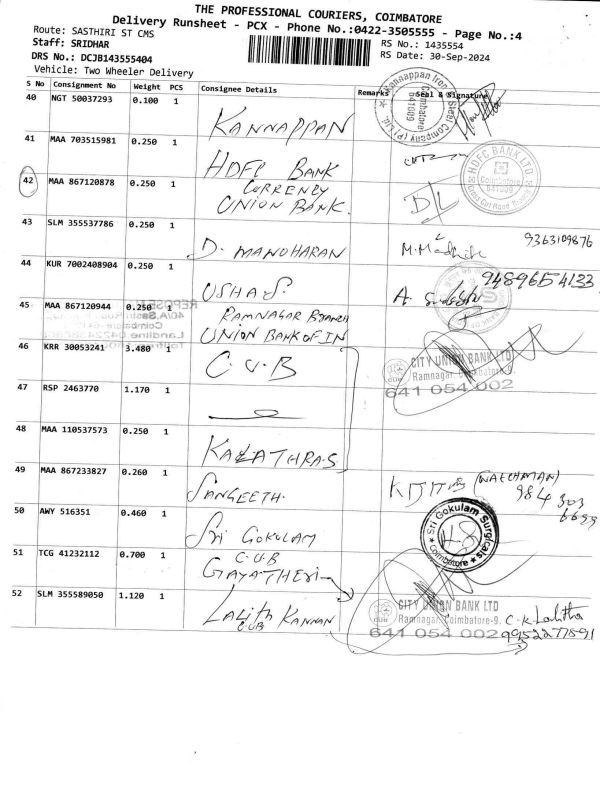 THE PROFESSIONAL COURIERS, COIMBATORE
Delivery Runsheet - PCX - Phone No.:0422-3505555 - Page No.:4
Route: SASTHIRI ST CMS
Staff: SRIDHAR
DRS No.: DCJB143555404
Vehicle: Two Wheeler Delivery
RS No.: 1435554
RS Date: 30-Sep-2024
S No Consignment No Weight PCS Consignee Details Remarks Seal & Signature
40 NGT 50037293 0.100 1
KANNAPPAN
Kannappan Iron Steel Company (P) Ltd.
Coimbatore
641009
41 MAA 703515981 0.250 1
HDFC BANK
HDFC BANK LTD
Coimbatore
641009
42 MAA 867120878 0.250 1
CURRENCY
UNION BANK.
43 SLM 355537786 0.250 1
D. MANOHARAN
9363109876
44 KUR 7002408904 0.250 1
USHA S.
9489654133
45 MAA 867120944 0.250 1
RAMNAGAR BRANCH
UNION BANK OF IN
46 KRR 30053241 3.480 1
C.U.B
CITY UNION BANK LTD
Ramnagar, Coimbatore-9.
641 054 002
47 RSP 2463770 1.170 1
48 MAA 110537573 0.250 1
KALATHRAS
49 MAA 867233827 0.260 1
SANGEETH.
(WATCHMAN)
984 303
6699
50 AWY 516351 0.460 1
Sri GOKULAM
Sri Gokulam Surgicals
Coimbatore
51 TCG 41232112 0.700 1
C.U.B
GAYATHERI
52 SLM 355589050 1.120 1
LALITH KANNAN
CUB
CITY UNION BANK LTD
Ramnagar, Coimbatore-9.
641 054 002
C.K Lalitha
9952277591